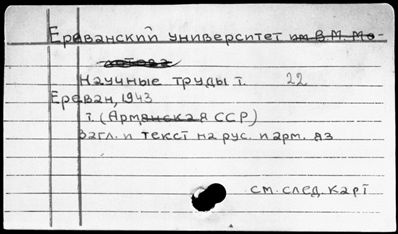 Ереванский университет им В.М. Мо-
лотова
Научные труды т. 22
Ереван, 1943
т. (Армянская ССР)
Загл. и текст на рус. и арм. яз
см. след. карт